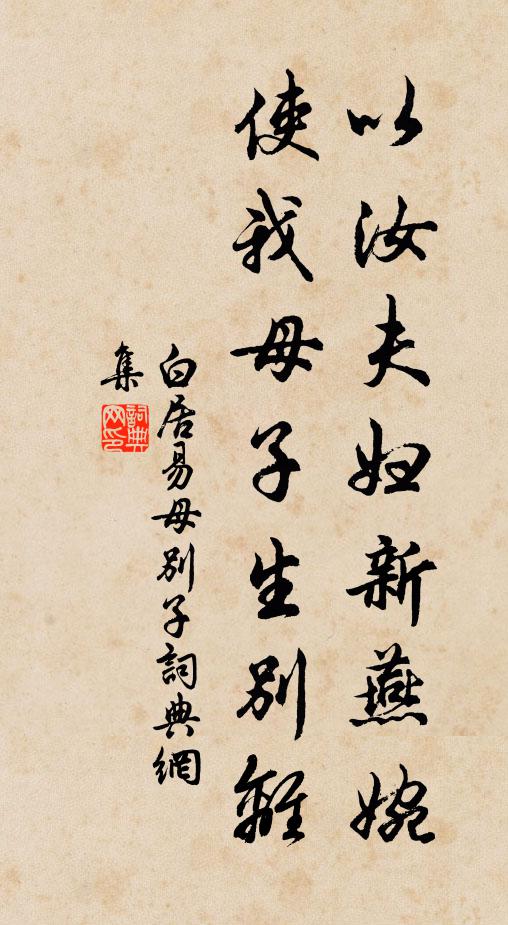 以汝夫妇新燕婉
使我母子生别離
白居易母别子詞典網
集
詞典网印